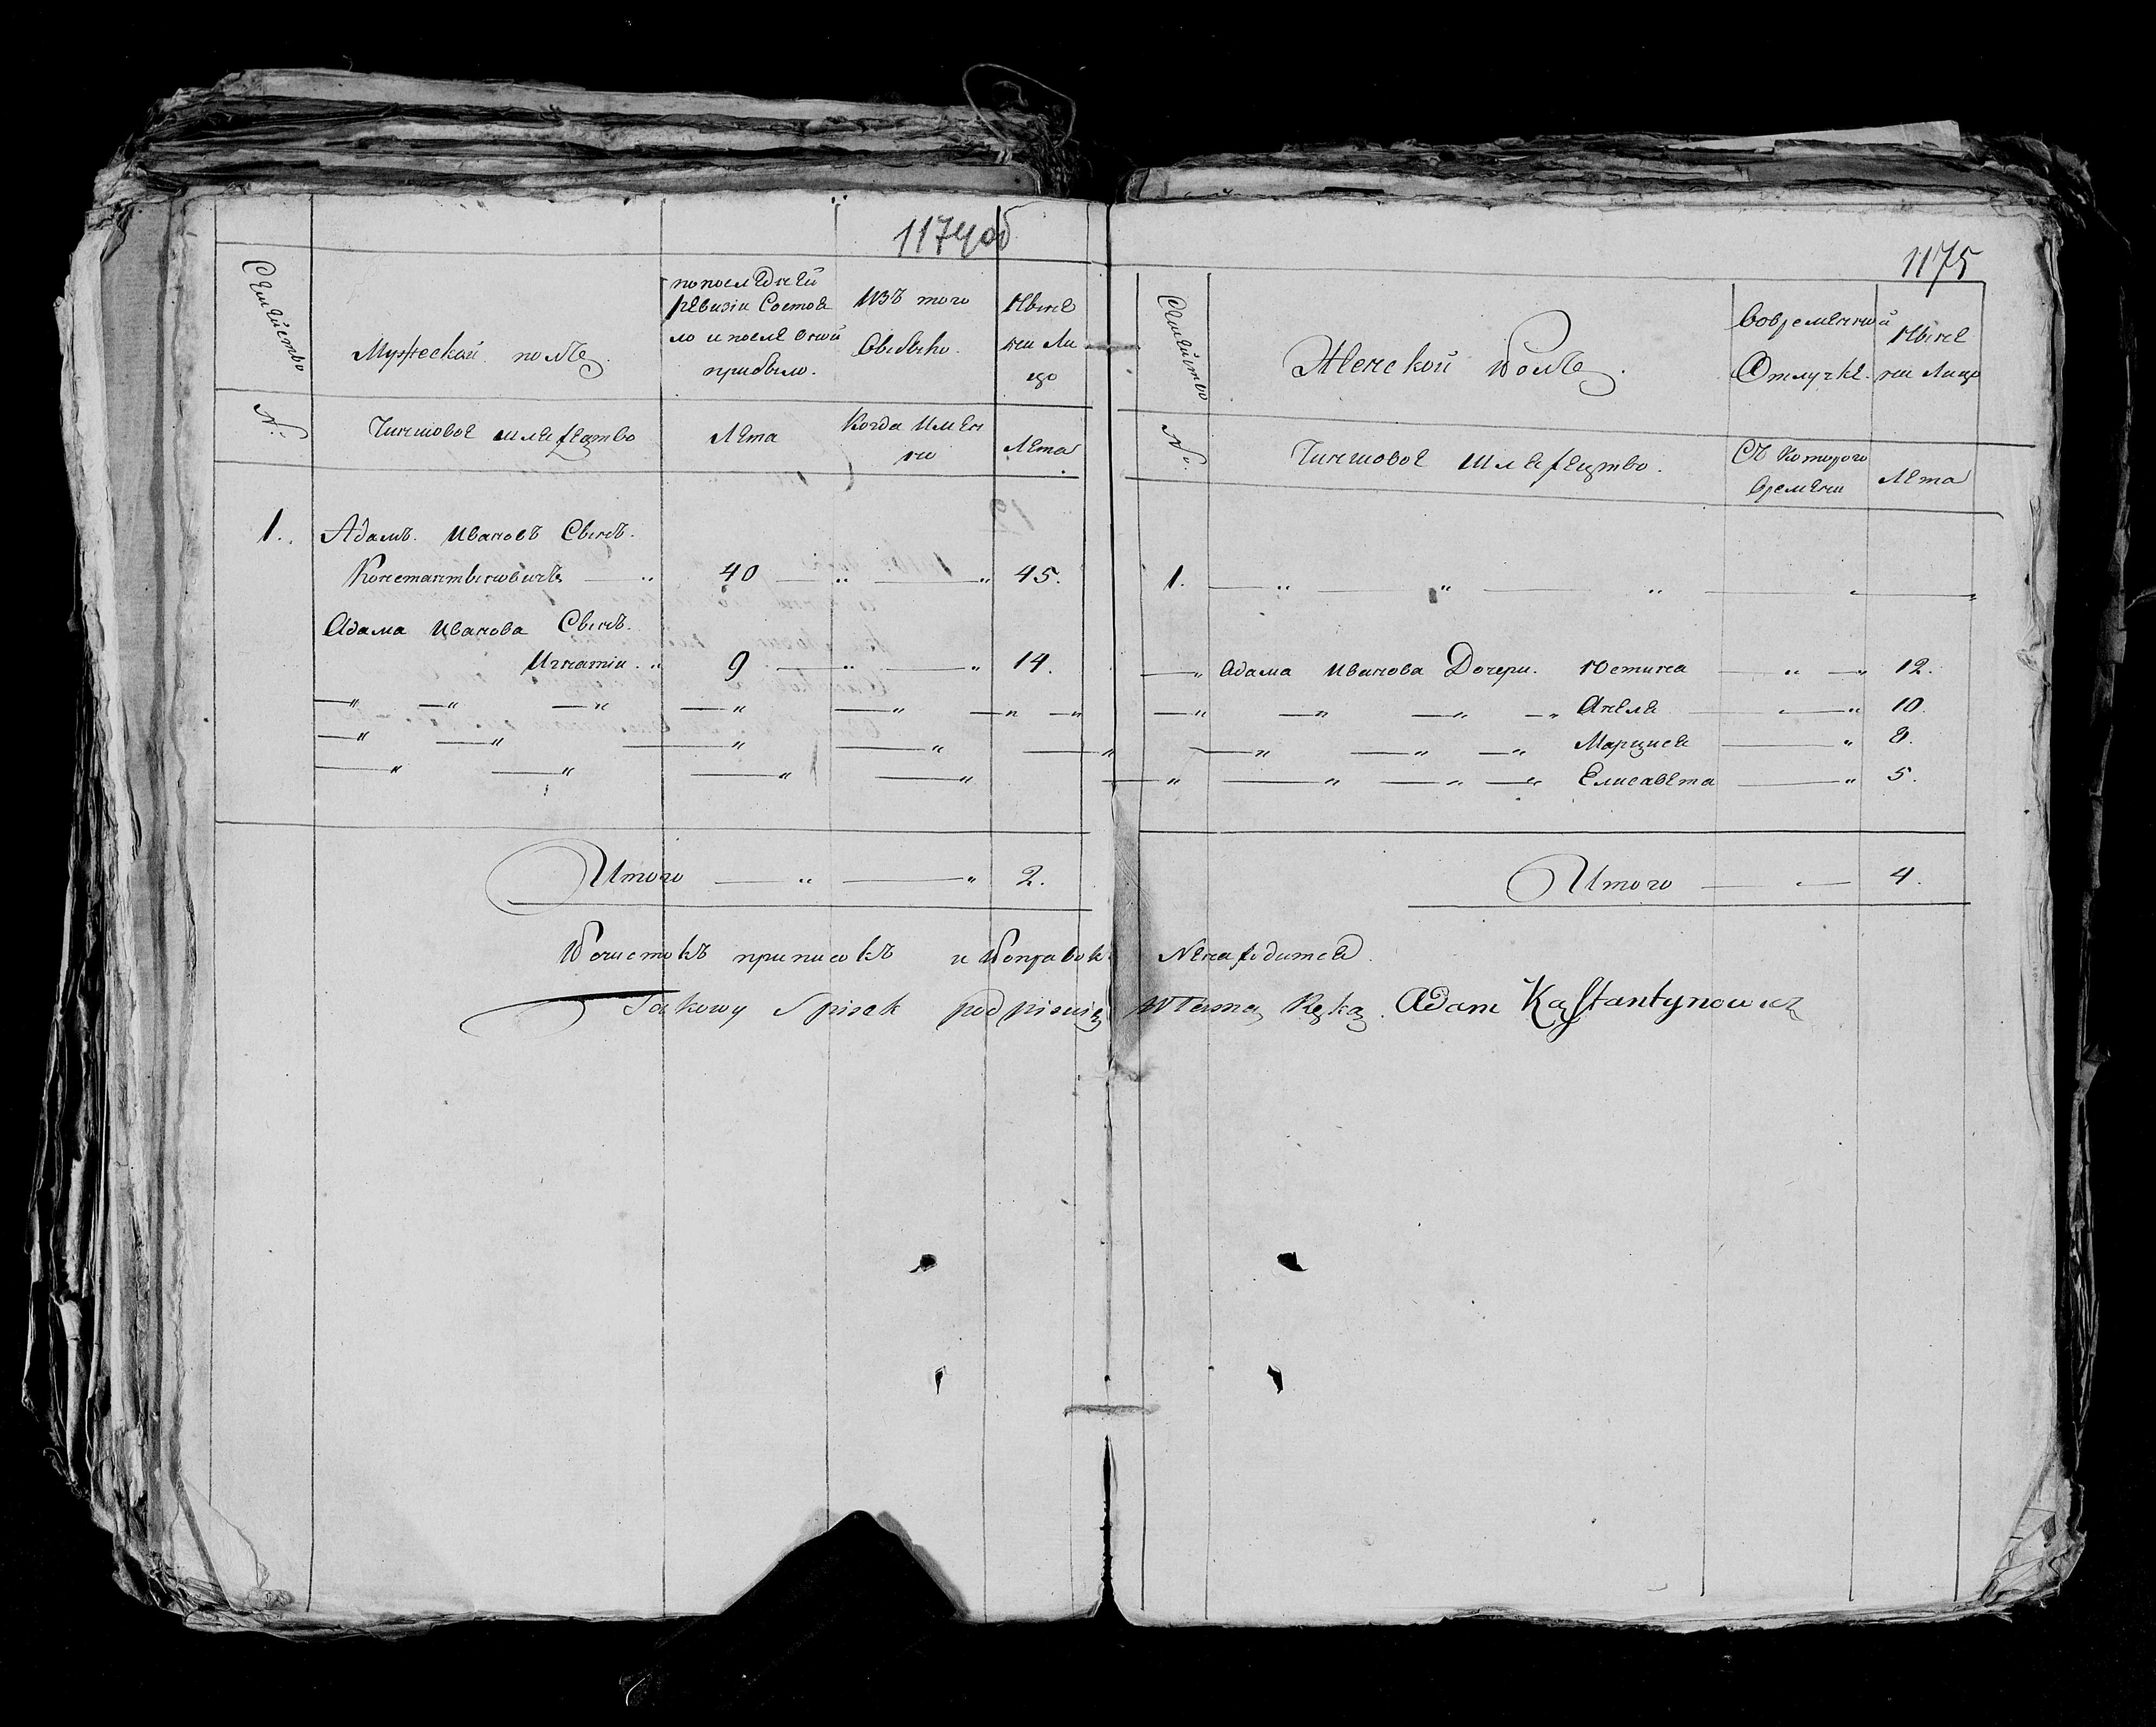 1174об
Семейство
Мужеской полъ.
попоследней
ревизіи Состоя
ло и после оной
прибыло.
Изъ того
Выбыло.
Ныне
на ли
цо
№:
Чиншовое шляхецтво
Лета
Когда Имен
но
Лета
1. Адамъ Ивановъ Сынъ.
Константыновичъ — „ 40 — „ — „ 45.
Адама Иванова Сынъ.
Игнатіи. „ 9 — „ — „ 14.
— „ — „ — „ — „ — „ — „ — „
— „ — „ — „ — „ — „
— „ — „ — „ — „
Итого — „ — „ 2.
1175
Семейство
Женской Полъ.
Вовременной
Отлучке.
Ныне
на Лицо
№.
Чиншовое Шляхецтво.
Съ Которого
Времени
Лета
1. — „ — „ — „ — „ —
— „ Адама Иванова Дочери. Юстина — „ — „ 12.
— „ — „ — „ — „ Анеля — „ 10.
— „ — „ — „ Марцися — „ 8.
— „ — „ — „ — „ Елисавета — „ 5.
Итого — „ — 4.
Почистокъ приписокъ и Поправокъ Ненаходится.
Takowy Spisek podpisuię Własną Ręką. Adam Kąstantynowicz